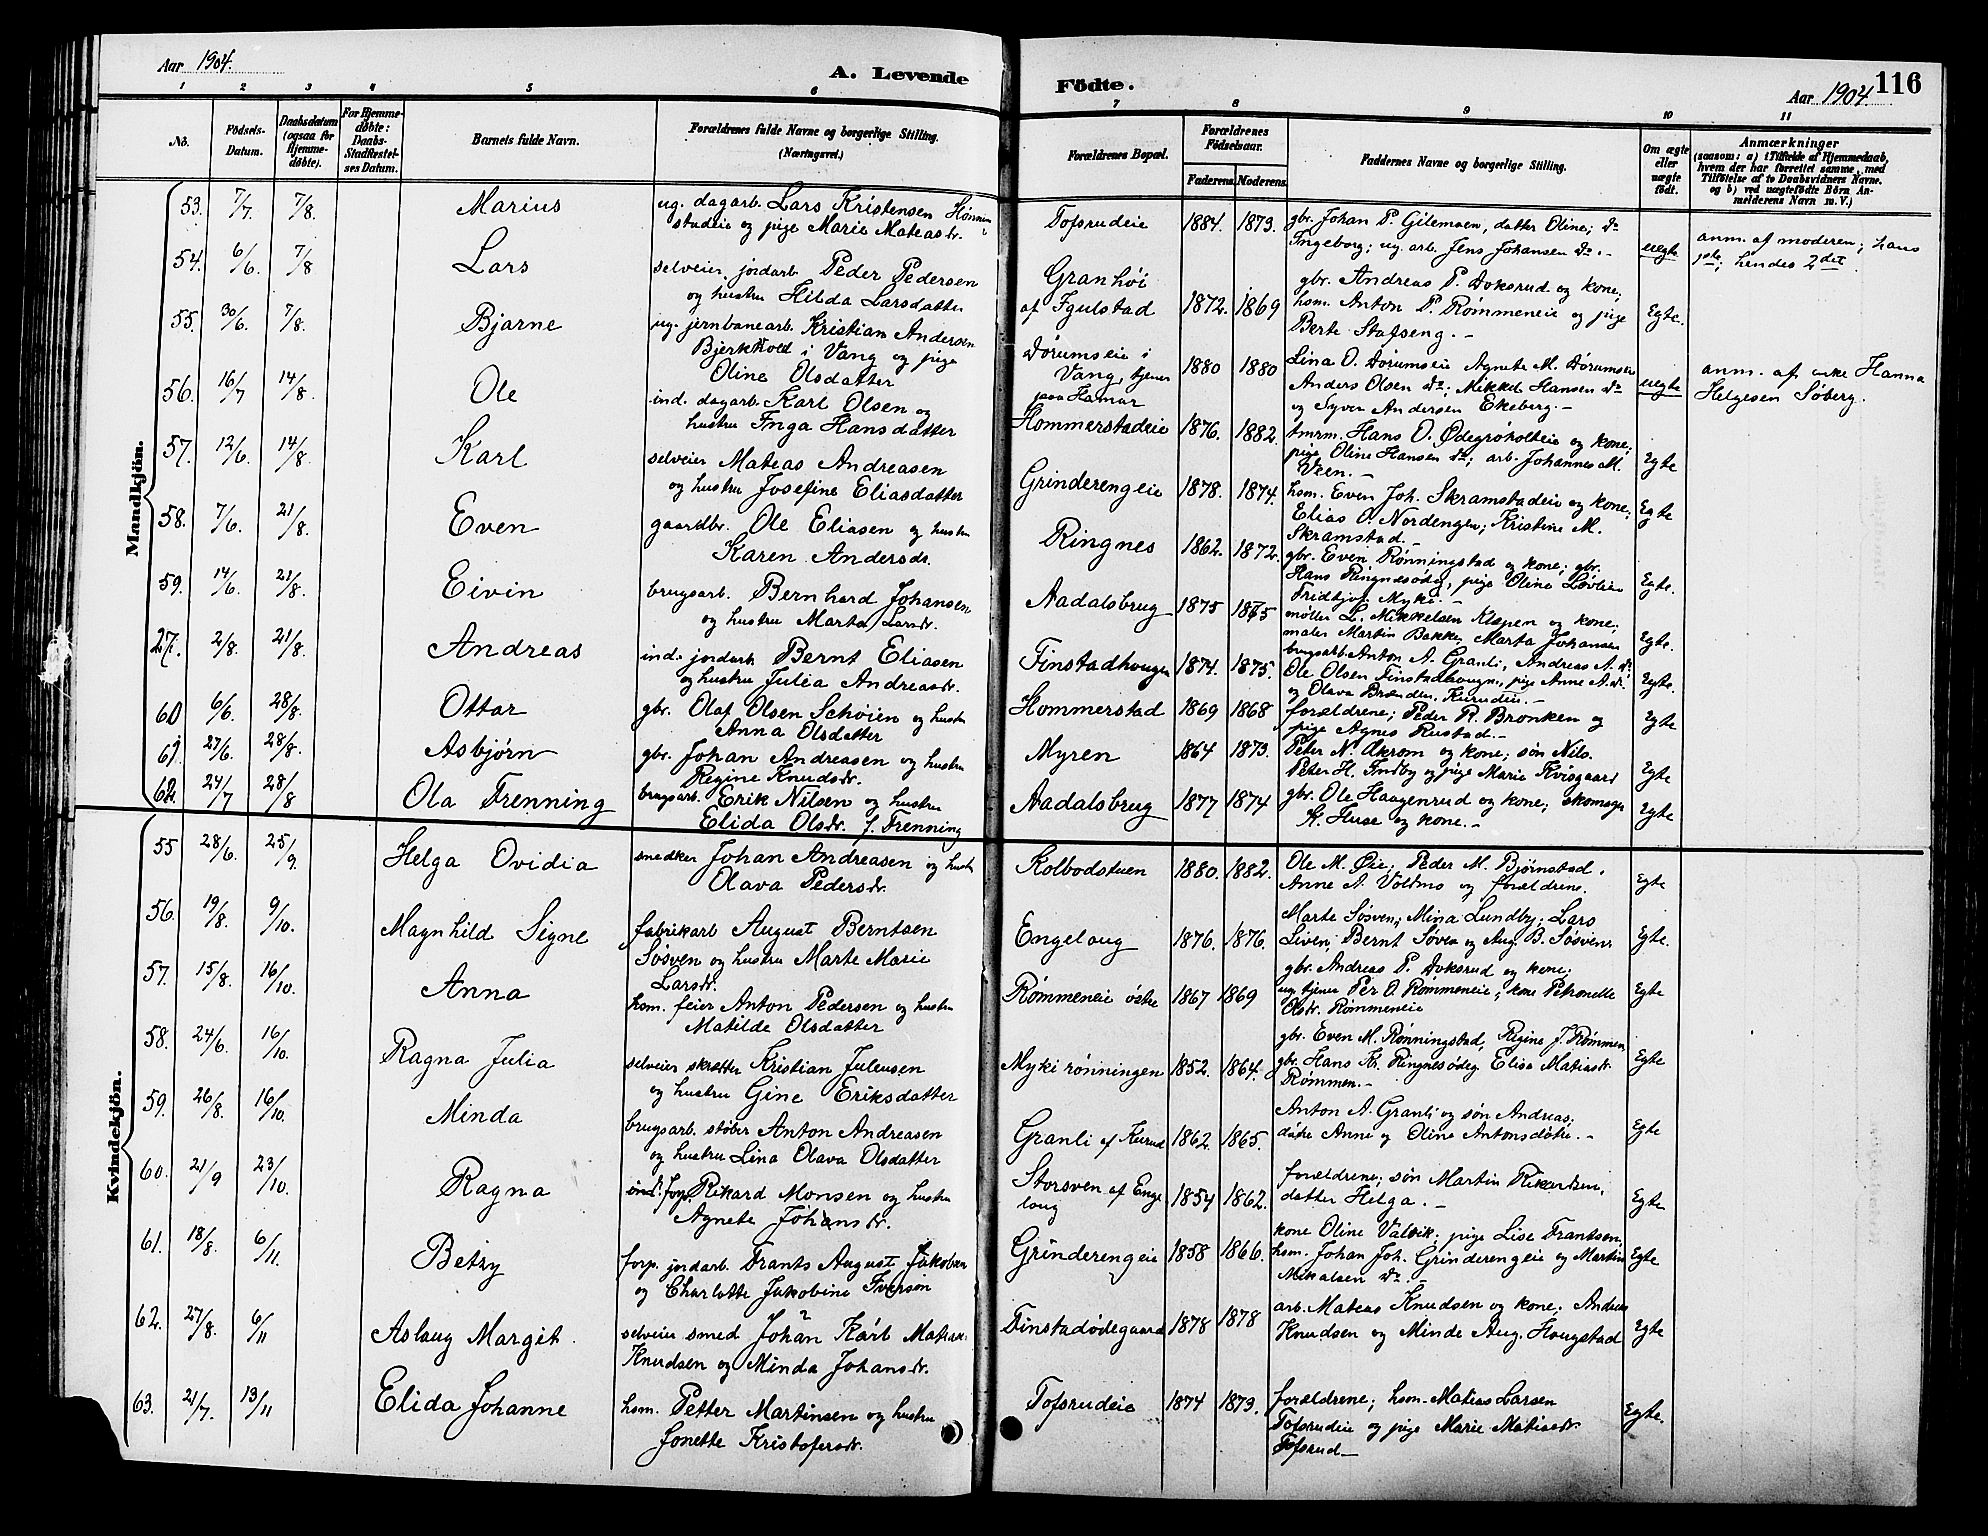 Aar 1904.
A. Levende
Födte.
Aar 1904. 116
1 2 3 4 5 6 7 8 9 10 11
No.
Födsels-Datum.
Daabsdatum (ogsaa for Hjemmedøbte).
For Hjemmedøbte: Daabs-Stadfæstelses Datum.
Barnets fulde Navn.
Forældrenes fulde Navne og borgerlige Stilling.
(Næringsvei.)
Forældrenes Bopæl.
Forældrenes Födselsaar.
Faderens. Moderens.
Faddernes Navne og borgerlige Stilling.
Om ægte eller uægte födt.
Anmærkninger
(saasom: a) i Tilfælde af Hjemmedaab, hvem der har forrettet samme, med Tilföielse af to Daabsvidners Navne, og b) ved uægtefödte Börn Anmelderens Navn m. V.)
Mandkjön.
53. 7/7. 7/8. Marius
ug. dagarb. Lars Kristensen
studeie og pige Marie Mateasdr.
Tofsrudeie 1884. 1873.
gbr. Johan P. Gilemoen, datter Oline; do
Ingeborg; ug. arb. Jens Johansen do. -
uegte
anm. af moderen; hans
1ste; hendes 2det.
54. 6/6. 7/8 Lars
selveier, jordarb. Peder Pedersen
og hustru Hilda Larsdatter
Granhöi
af Igulstad 1872. 1869
gbr. Andreas P. Doksrud og kone;
hsm. Anton P. Rømmeneie og pige
Berte Stafseng. -
Egte.
55. 30/6. 7/8. Bjarne
ug. jernbanearb. Kristian Andersen
Bjerkhold i Vang og pige
Oline Olsdatter
Dörumseie i
Vang, tjener
paa Hamar 1880 1880
Lina O. Dörumseie Agnete M. Dörumseie
Anders Olsen do; Mikkel Hansen do
og Syver Andersen Ekeberg. -
uegte
anm. af enke Hanna
Helgesen Söberg.
56. 16/7 14/8 Ole
ind. dagarb. Karl Olsen og
hustru Inga Hansdatter
Hommerstadeie 1876. 1882.
tmrm. Hans O. Ødegrøholteie og kone;
pige Oline Hansen do; arb. Johannes M.
Veen. -
Egte
57. 12/6. 14/8. Karl
selveier Mateas Andreasen
og hustru Josefine Eliasdatter
Grinderengeie 1878. 1874.
hsm. Even Joh. Skramstadeie og kone;
Elias O. Nordengen; Kristine M.
Skramstad. -
Egte
58. 7/6. 21/8. Even
gaardbr. Ole Eliasen og hustru
Karen Andersdr.
Ringnes 1862. 1872.
gbr. Even Rønningstad og kone; gbr.
Hans Ringnesødeg, pige Oline Løvlien
Fridtjof Myki. -
Egte.
59. 14/6. 21/8. Eivin
brugsarb. Bernhard Johansen
og hustru Marta Larsdr.
Aadalsbrug 1875 1875
møller L. Mikkelsen Klæpen og kone;
maler Martin Bakke, Marta Johansen
Egte.
27. 2/8. 21/8. Andreas
ind. jordarb. Bernt Eliasen
og hustru Julia Andreasdr.
Finstadhougen 1874. 1875.
brugsarb. Anton A. Granli, Andreas A. do
Ole Olsen Finstadhougen, pige Anne A. do
og Olava Brænden, Kurudeie. -
Egte.
60 6/6. 28/8. Ottar
gbr. Olaf Olsen Schöien og hustru
Anna Olsdatter
Hommerstad 1869 1868
forældrene; Peder R. Bronken og
pige Agnes Rustad. -
Egte
61 27/6. 28/8. Asbjørn
gbr. Johan Andreasen og hustru
Regine Knudsdr.
Myren 1864 1873.
Peter N. Akrom og kone; søn Nils.
Peter H. Indby og pige Marie Kvisgaard
Egte
62. 24/7 28/8 Ola Frenning
brugsarb. Erik Nilsen og hustru
Elida Olsdr. f. Frenning
Aadalsbrug 1877 1874
gbr. Ole Haagenrud og kone; skomager
K. Huse og kone. -
Egte
Kvindekjön.
55 28/6. 25/9. Helga Ovidia
snedker Johan Andreasen og hustru
Olava Pedersdr.
Kolbodstuen 1880. 1882.
Ole M. Øie; Peder M. Bjørnstad.
Anne A. Voltmo og forældrene.
Egte
56. 19/8. 9/10. Magnhild Signe
fabrikarb August Berntsen
Søsven og hustru Marte Marie
Larsdr.
Engeloug 1876. 1876.
Marte Søsven; Mina Lundby; Lars
Liven; Bernt Søven og Aug. B. Søsven
Egte.
57. 15/8. 16/10. Anna
hsm. feier Anton Pedersen og hustru
Matilde Olsdatter
Rømmeneie östre 1867 1869
gbr. Andreas P. Doksrud og kone;
ug. tjener Per O. Rømmeneie; kone Petronelle
Olsdr. Rømmeneie
Egte
58. 24/6. 16/10. Ragna Julia
selveier skrædder Kristian Juleusen
og hustru Gine Eriksdatter
Myki rønningen 1852. 1864.
gbr. Even M. Rønningstad, Regine J. Rømmen,
gbr. Hans Kr. Ringnesødeg. Elisa Matiasdr
Rømmen. -
Egte
59. 26/8. 16/10. Minda
brugsarb. støber Anton Andreasen
og hustru Lina Olava Olsdatter
Granli af Kurud 1862. 1865.
Anton A. Granli og søn Andreas;
døtre Anne og Oline Antonsdøtre. -
Egte
60. 21/9 23/10. Ragna
ind. forp. Rikard Monsen og hustru
Agnete Johansdr.
Storsven af Enge
loug 1854 1862.
forældrene; søn Martin Rikardsen,
datter Helga. -
Egte
61. 18/8. 6/11. Betzy
forp. jordarb. Frants August Jakobsen
og Charlotte Jakobine Iverson
Grinderengeie 1858 1866.
kone Oline Valvik; pige Lise Frantsen.
hsm. Johan Joh. Grinderengeie og Martin
Mikalsen do. -
Egte
62. 27/8. 6/11 Aslaug Margit.
selveier smed Johan Karl Mateas
Knudsen og Minda Johansdr.
Finstadødegaard 1878 1878
arb. Mateas Knudsen og kone; Andreas
Knudsen og Minde Aug. Hougstad
Egte
63. 21/7. 13/11 Elida Johanne
hsm. Petter Martinsen og hustru
Jonette Kristofersdr.
Tofsrudeie 1874 1873.
forældrene; hsm. Matias Larsen
Tofsrudeie og pige Marie Matiasdr.
Tofsrud. -
Egte.